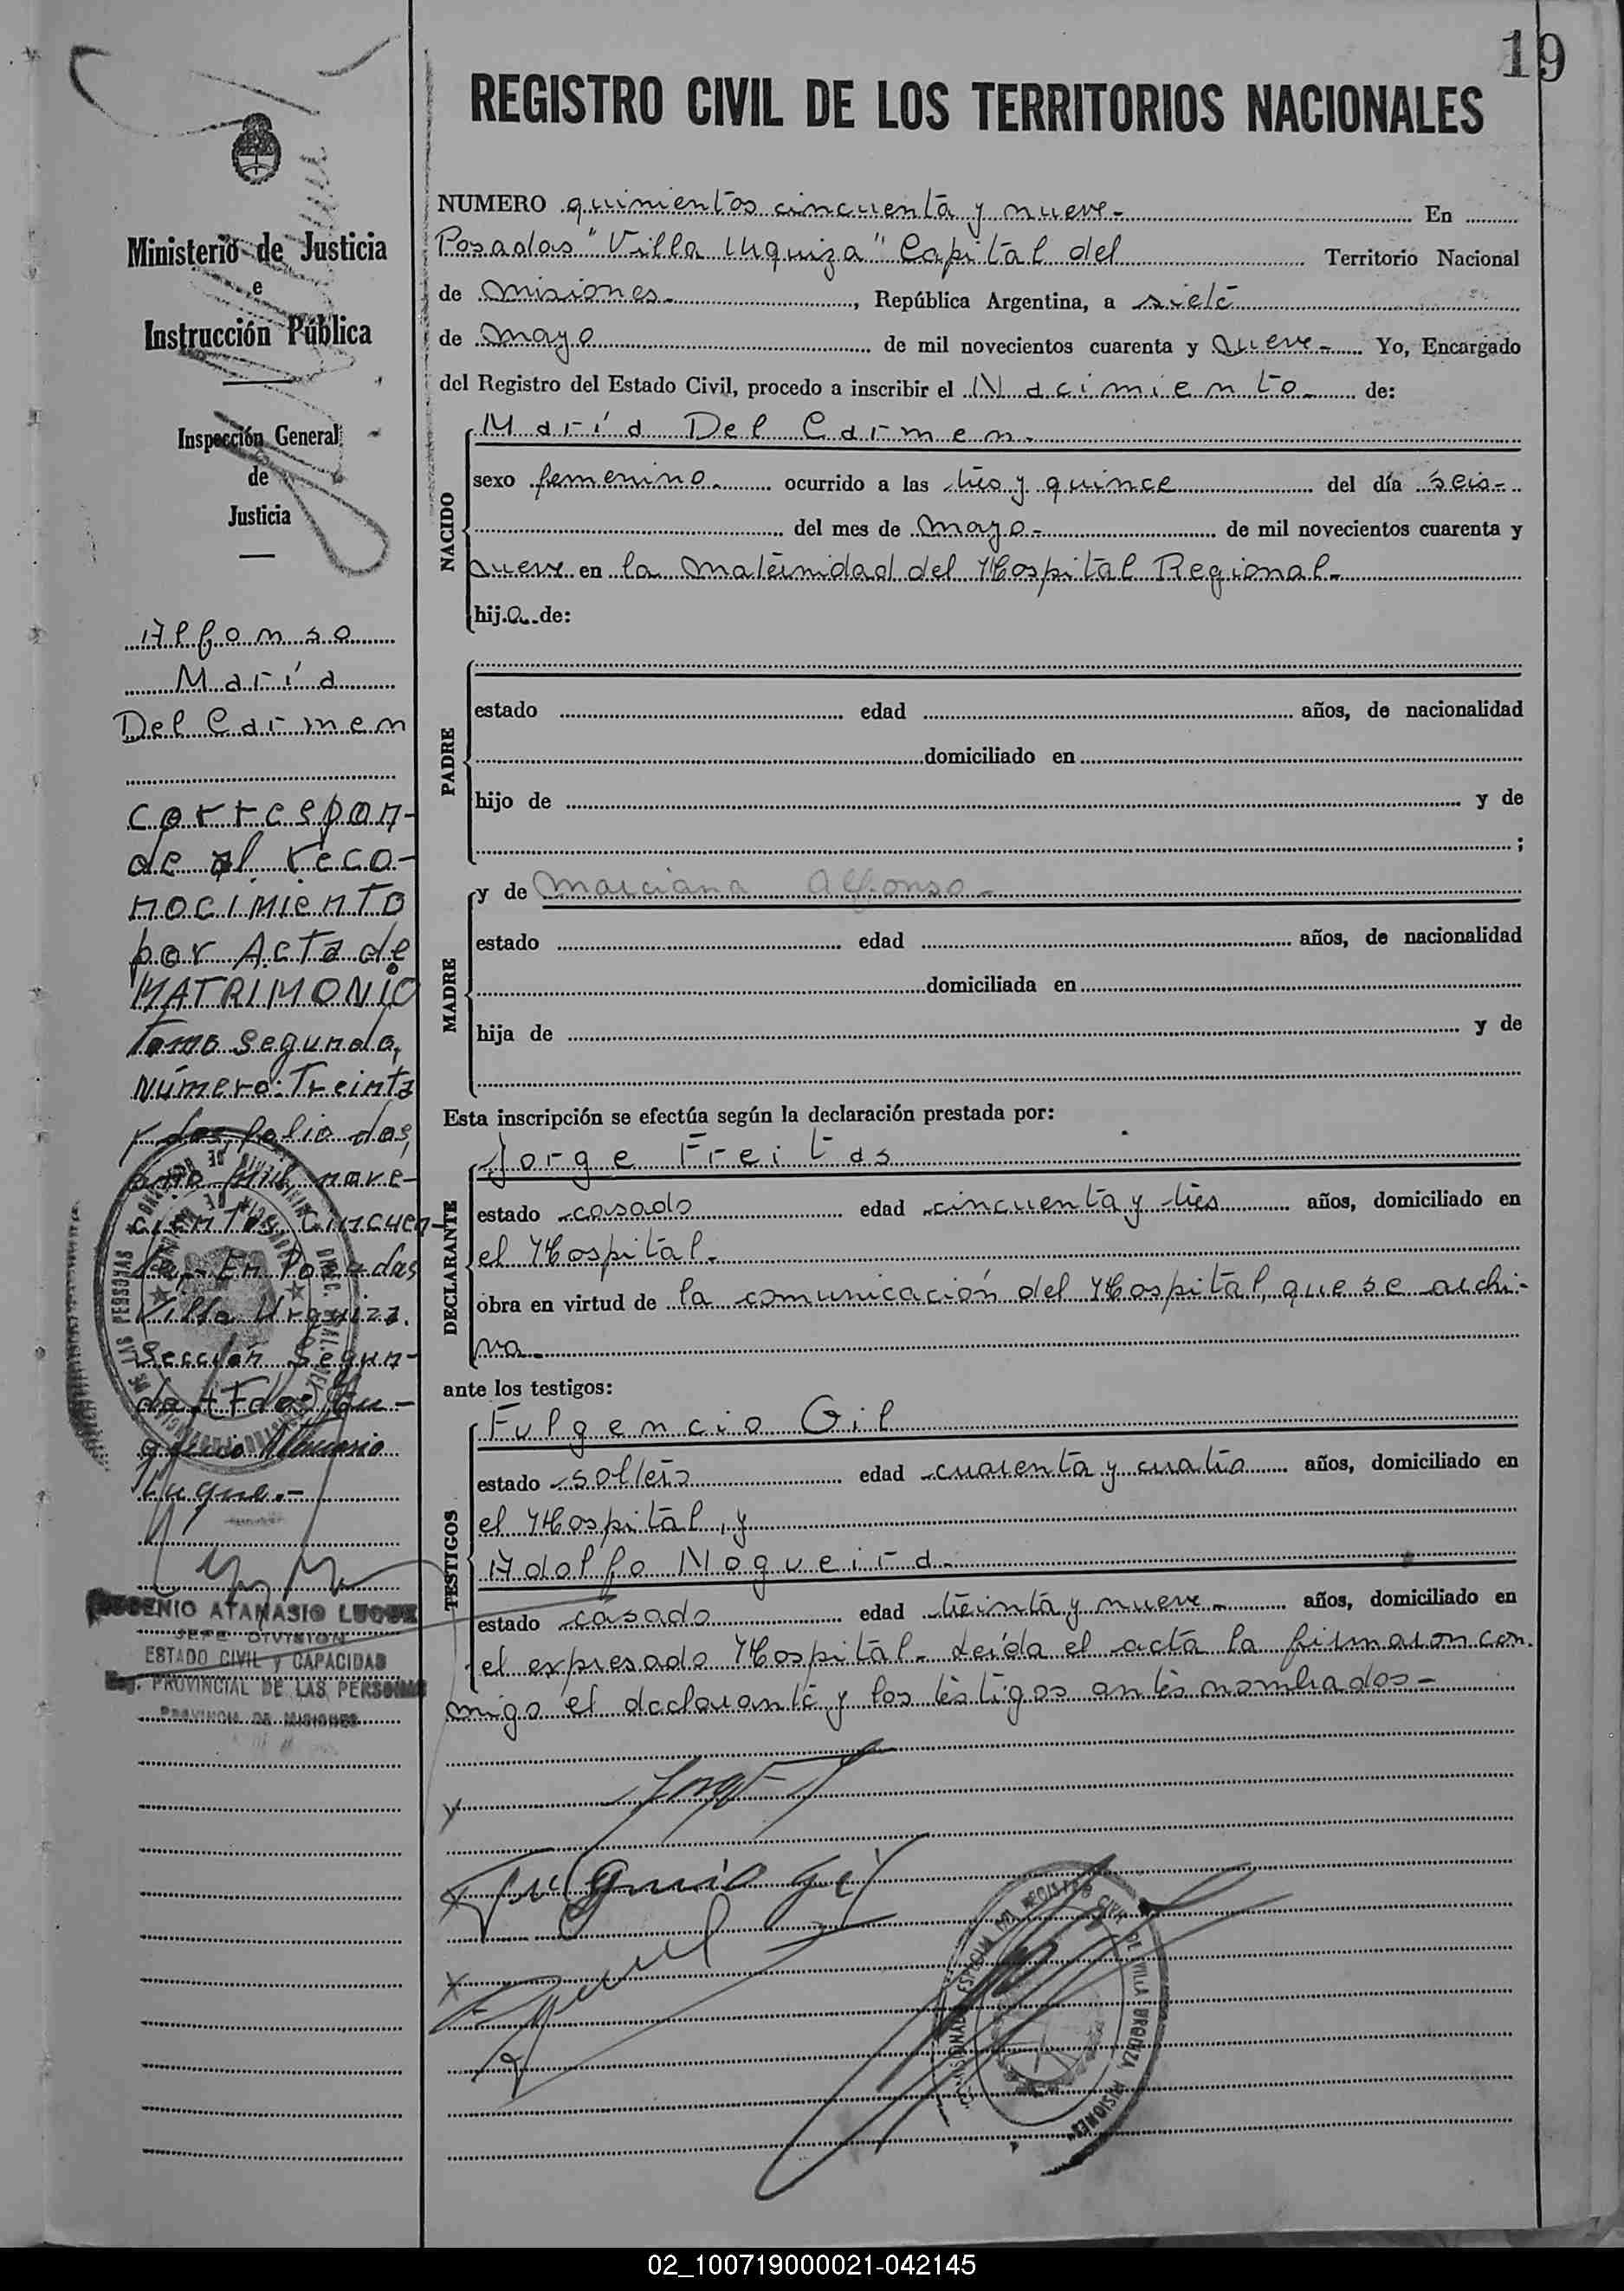 19
REGISTRO CIVIL DE LOS TERRITORIOS NACIONALES
Ministerio de Justicia
e
Instrucción Pública
Inspección General
de
Justicia
Alfonso
María
Del Carmen
correspon-
de al reco-
nocimiento
por Acta de
MATRIMONIO
Tomo segundo,
Número: Treinta
y dos folio dos,
año mil nove-
cientos Cincuen-
ta.- En Posadas
Villa Urquiza.
Sección Segun-
da. Fdo: Eu-
genio Atanasio
Luque.-
EUGENIO ATANASIO LUQUE
JEFE DIVISION
ESTADO CIVIL y CAPACIDAD
Reg. PROVINCIAL DE LAS PERSONAS
PROVINCIA DE MISIONES
NUMERO quinientos cincuenta y nueve.- En
Posadas "Villa Urquiza" Capital del Territorio Nacional
de Misiones.- , República Argentina, a siete
de mayo de mil novecientos cuarenta y nueve.- Yo, Encargado
del Registro del Estado Civil, procedo a inscribir el Nacimiento.- de:
NACIDO
María Del Carmen.
sexo femenino.- ocurrido a las tres y quince del día seis.-
del mes de mayo.- de mil novecientos cuarenta y
nueve en la Maternidad del Hospital Regional.-
hija de:
PADRE
estado edad años, de nacionalidad
domiciliado en
hijo de y de
;
MADRE
y de Marciana Alfonso.-
estado edad años, de nacionalidad
domiciliada en
hija de y de
Esta inscripción se efectúa según la declaración prestada por:
DECLARANTE
Jorge Freitas
estado casado edad cincuenta y tres años, domiciliado en
el Hospital.-
obra en virtud de la comunicación del Hospital, que se archi-
va.-
ante los testigos:
TESTIGOS
Fulgencio Gil
estado soltero edad cuarenta y cuatro años, domiciliado en
el Hospital, y
Adolfo Nogueira.
estado casado edad treinta y nueve.- años, domiciliado en
el expresado Hospital.- Leída el acta la firmaron con-
migo el declarante y los testigos antes nombrados.-
Fulgencio Gil
REGISTRO CIVIL DE VILLA URQUIZA MISIONES
02_100719000021-042145